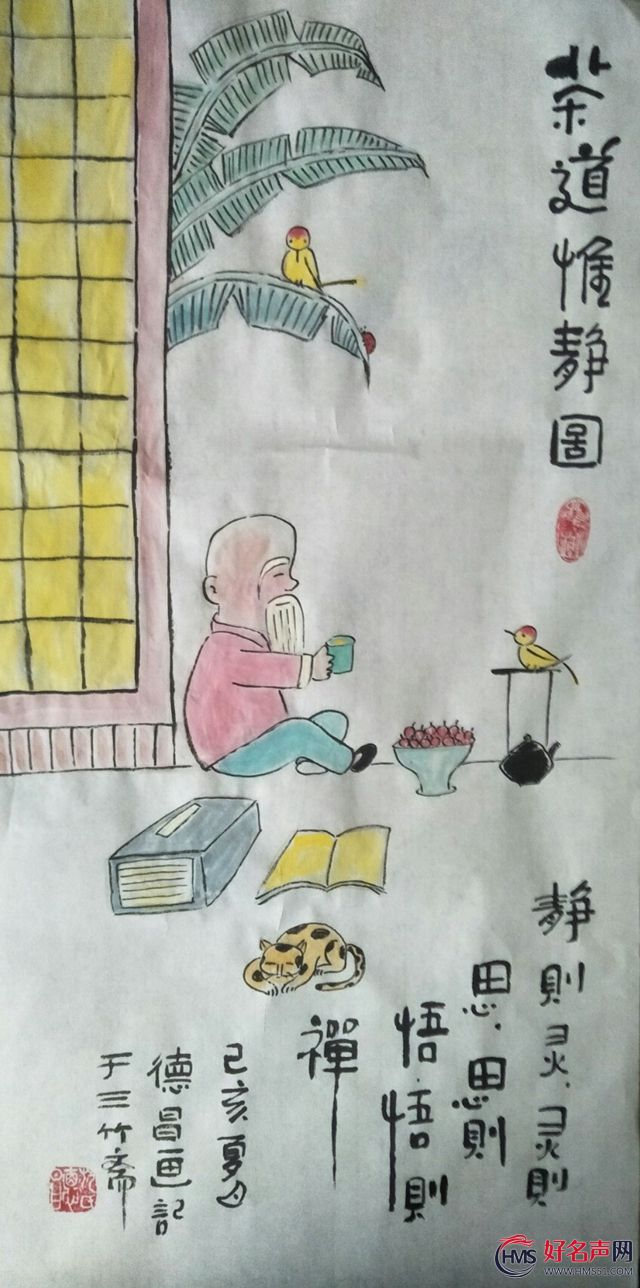 茶道惟静圖
静則灵、灵則
思、思則
悟、悟則
禪
己亥夏月
德昌画記
于三竹斋
HMS 好名声网
WWW.HMS51.COM